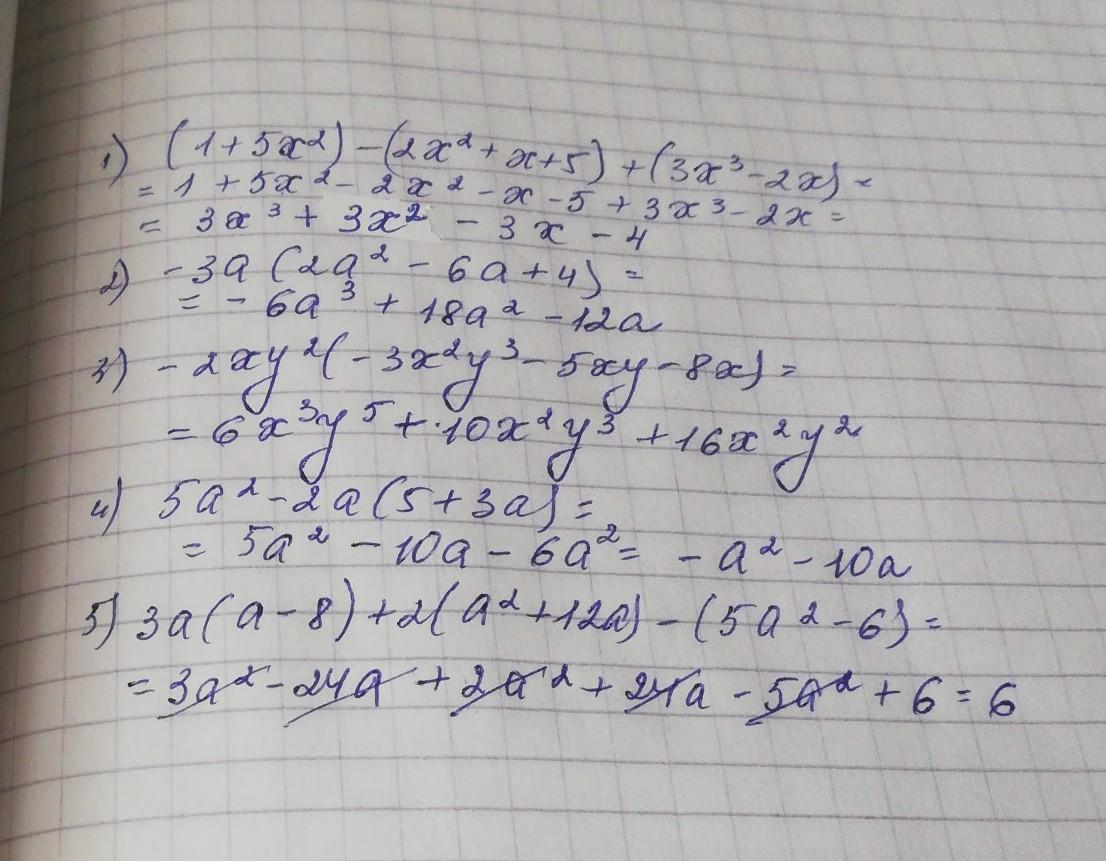 1) (1+5x²) - (2x² + x+5) + (3x³ - 2x) =
= 1 + 5x² - 2x² - x - 5 + 3x³ - 2x =
= 3x³ + 3x² - 3x - 4
2) -3a (2a² - 6a + 4) =
= - 6a³ + 18a² - 12a
3) - 2xy² (- 3x²y³ - 5xy - 8x) =
= 6x³y⁵ + 10x²y³ + 16x²y²
4) 5a² - 2a (5 + 3a) =
= 5a² - 10a - 6a² = - a² - 10a
5) 3a(a - 8) + 2(a² + 12a) - (5a² - 6) =
= 3a² - 24a + 2a² + 24a - 5a² + 6 = 6